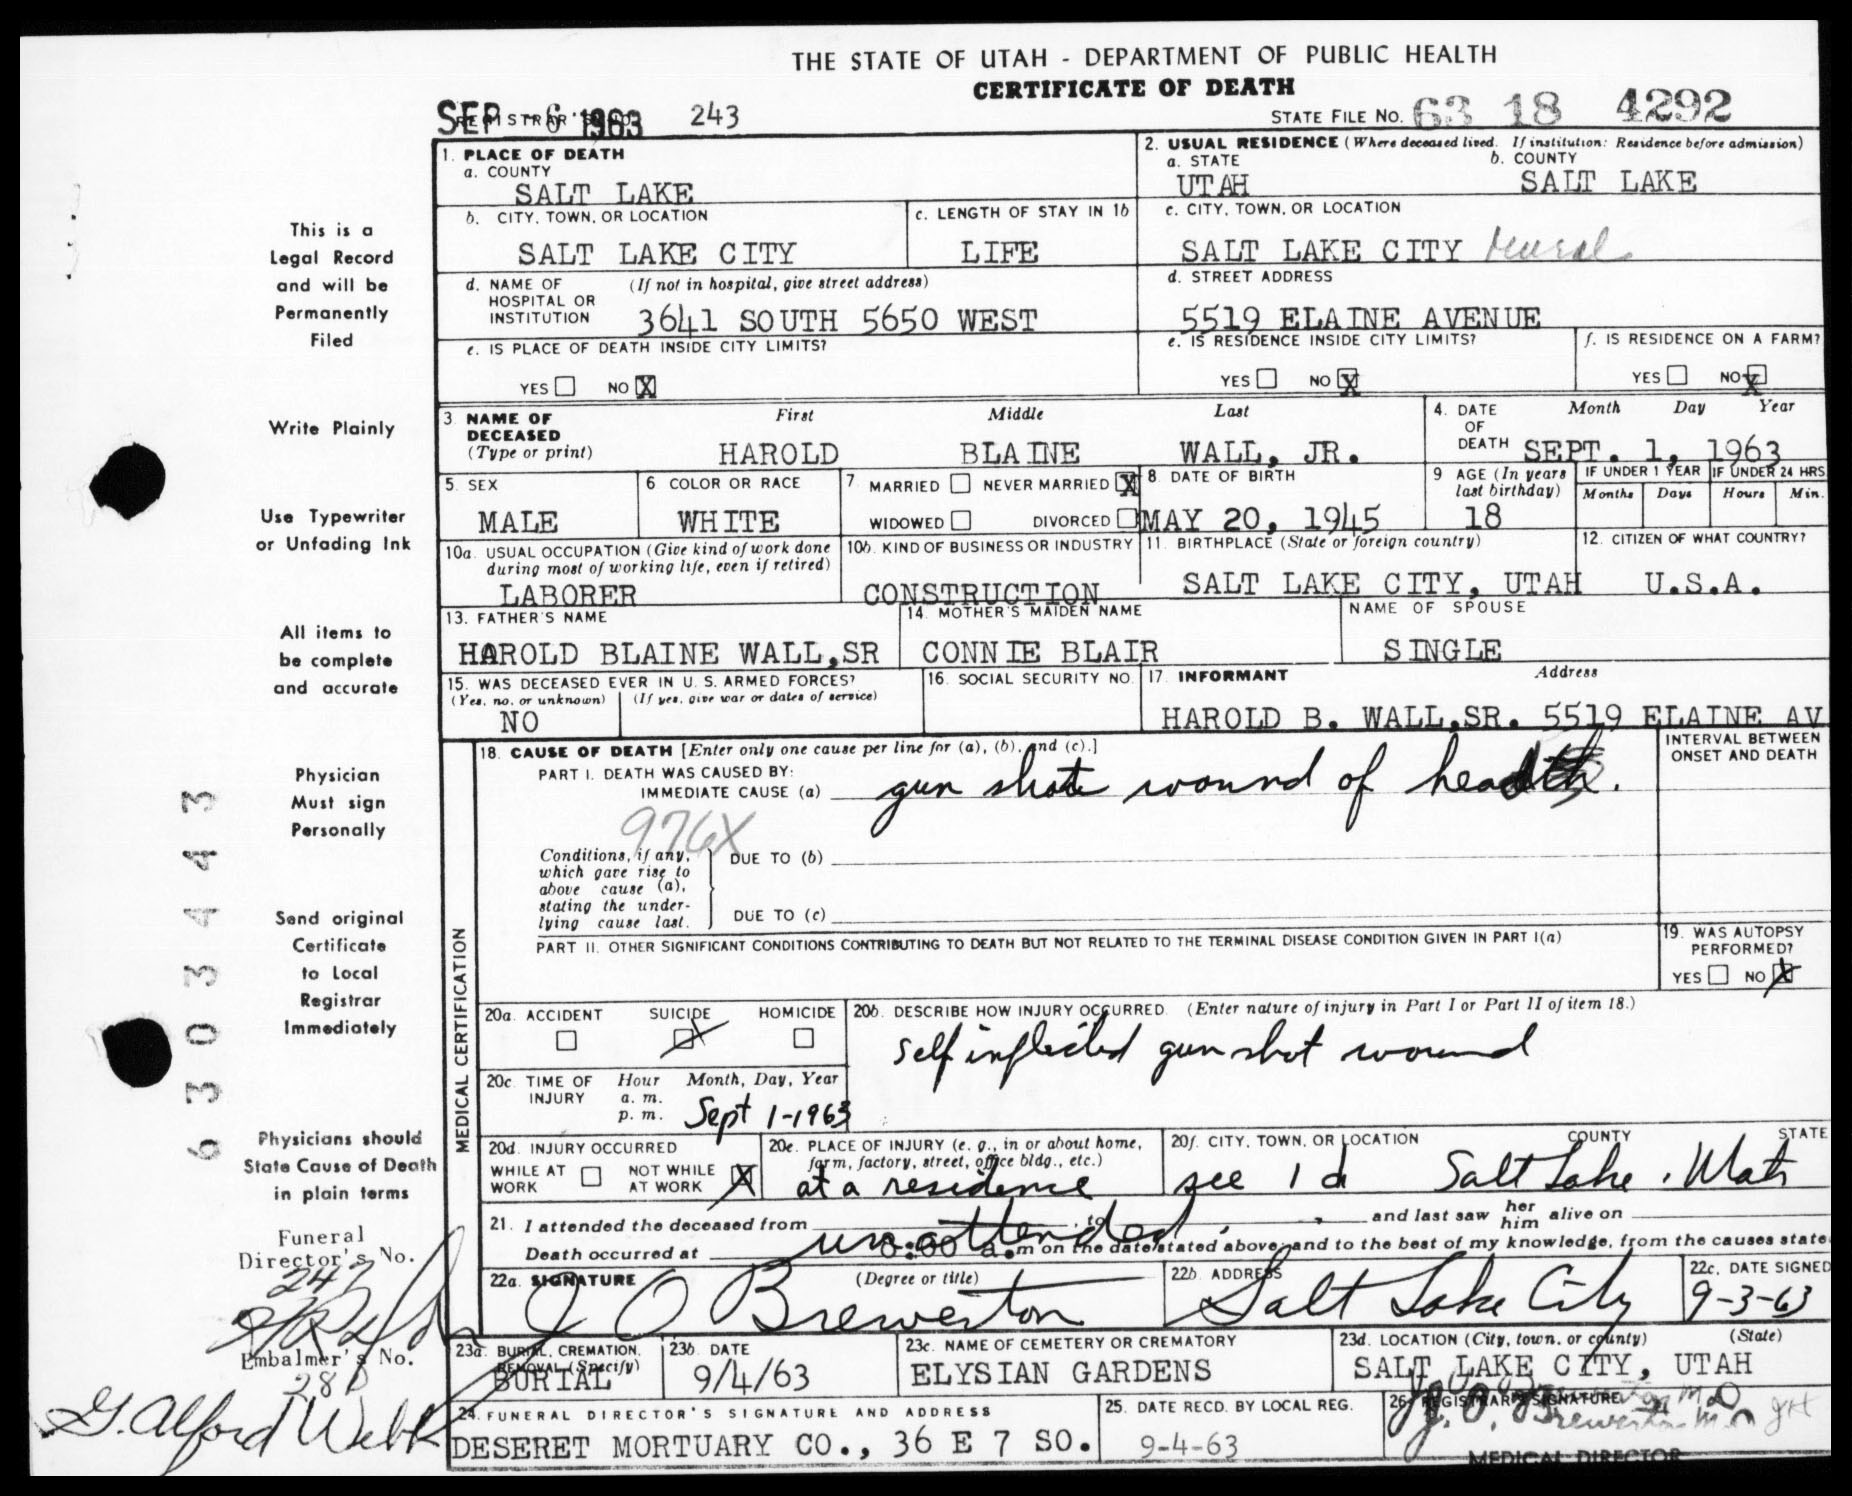 THE STATE OF UTAH - DEPARTMENT OF PUBLIC HEALTH
CERTIFICATE OF DEATH
SEP - 6 1963 243
STATE FILE NO. 63 18 4292
1. PLACE OF DEATH
a. COUNTY
SALT LAKE
2. USUAL RESIDENCE (Where deceased lived. If institution: Residence before admission)
a. STATE b. COUNTY
UTAH SALT LAKE
b. CITY, TOWN, OR LOCATION
SALT LAKE CITY
c. LENGTH OF STAY IN 1b
LIFE
c. CITY, TOWN, OR LOCATION
SALT LAKE CITY rural
d. NAME OF HOSPITAL OR INSTITUTION (If not in hospital, give street address)
3641 SOUTH 5650 WEST
d. STREET ADDRESS
5519 ELAINE AVENUE
e. IS PLACE OF DEATH INSIDE CITY LIMITS?
YES NO X
e. IS RESIDENCE INSIDE CITY LIMITS?
YES NO X
f. IS RESIDENCE ON A FARM?
YES NO X
3 NAME OF DECEASED (Type or print)
First Middle Last
HAROLD BLAINE WALL, JR.
4. DATE OF DEATH Month Day Year
SEPT. 1, 1963
5. SEX
MALE
6 COLOR OR RACE
WHITE
7 MARRIED NEVER MARRIED X
WIDOWED DIVORCED
8. DATE OF BIRTH
MAY 20, 1945
9 AGE (In years last birthday)
18
IF UNDER 1 YEAR
Months Days
IF UNDER 24 HRS
Hours Min.
10a. USUAL OCCUPATION (Give kind of work done during most of working life, even if retired)
LABORER
10b. KIND OF BUSINESS OR INDUSTRY
CONSTRUCTION
11. BIRTHPLACE (State or foreign country)
SALT LAKE CITY, UTAH
12. CITIZEN OF WHAT COUNTRY?
U.S.A.
13. FATHER'S NAME
HAROLD BLAINE WALL,SR
14. MOTHER'S MAIDEN NAME
CONNIE BLAIR
NAME OF SPOUSE
SINGLE
15. WAS DECEASED EVER IN U. S. ARMED FORCES?
(Yes, no, or unknown) (If yes, give war or dates of service)
NO
16. SOCIAL SECURITY NO.
17. INFORMANT Address
HAROLD B. WALL,SR. 5519 ELAINE AV
MEDICAL CERTIFICATION
18. CAUSE OF DEATH [Enter only one cause per line for (a), (b), and (c).]
INTERVAL BETWEEN ONSET AND DEATH
PART I. DEATH WAS CAUSED BY:
IMMEDIATE CAUSE (a) gun shot wound of head
976X
Conditions, if any, which gave rise to above cause (a), stating the underlying cause last.
DUE TO (b)
DUE TO (c)
PART II. OTHER SIGNIFICANT CONDITIONS CONTRIBUTING TO DEATH BUT NOT RELATED TO THE TERMINAL DISEASE CONDITION GIVEN IN PART I(a)
19. WAS AUTOPSY PERFORMED?
YES NO X
20a. ACCIDENT SUICIDE HOMICIDE
X
20b. DESCRIBE HOW INJURY OCCURRED. (Enter nature of injury in Part I or Part II of item 18.)
self inflicted gun shot wound
20c. TIME OF INJURY Hour Month, Day, Year
a. m.
p. m. Sept 1-1963
20d. INJURY OCCURRED
WHILE AT WORK NOT WHILE AT WORK X
20e. PLACE OF INJURY (e. g., in or about home, farm, factory, street, office bldg., etc.)
at a residence
20f. CITY, TOWN, OR LOCATION COUNTY STATE
see 1 d Salt Lake, Utah
21. I attended the deceased from to and last saw her him alive on
unattended
Death occurred at a.m on the date stated above; and to the best of my knowledge, from the causes state
22a. SIGNATURE (Degree or title)
J O Brewerton
22b. ADDRESS
Salt Lake City
22c. DATE SIGNED
9-3-63
23a. BURIAL, CREMATION, REMOVAL (Specify)
BURIAL
23b. DATE
9/4/63
23c. NAME OF CEMETERY OR CREMATORY
ELYSIAN GARDENS
23d. LOCATION (City, town, or county) (State)
SALT LAKE CITY, UTAH
24. FUNERAL DIRECTOR'S SIGNATURE AND ADDRESS
DESERET MORTUARY CO., 36 E 7 SO.
25. DATE RECD. BY LOCAL REG.
9-4-63
26. REGISTRAR'S SIGNATURE
MEDICAL DIRECTOR
This is a
Legal Record
and will be
Permanently
Filed
Write Plainly
Use Typewriter
or Unfading Ink
All items to
be complete
and accurate
Physician
Must sign
Personally
Send original
Certificate
to Local
Registrar
Immediately
Physicians should
State Cause of Death
in plain terms
Funeral
Director's No.
247
Embalmer's No.
G. Alford Webb
6 3 0 3 4 4 3